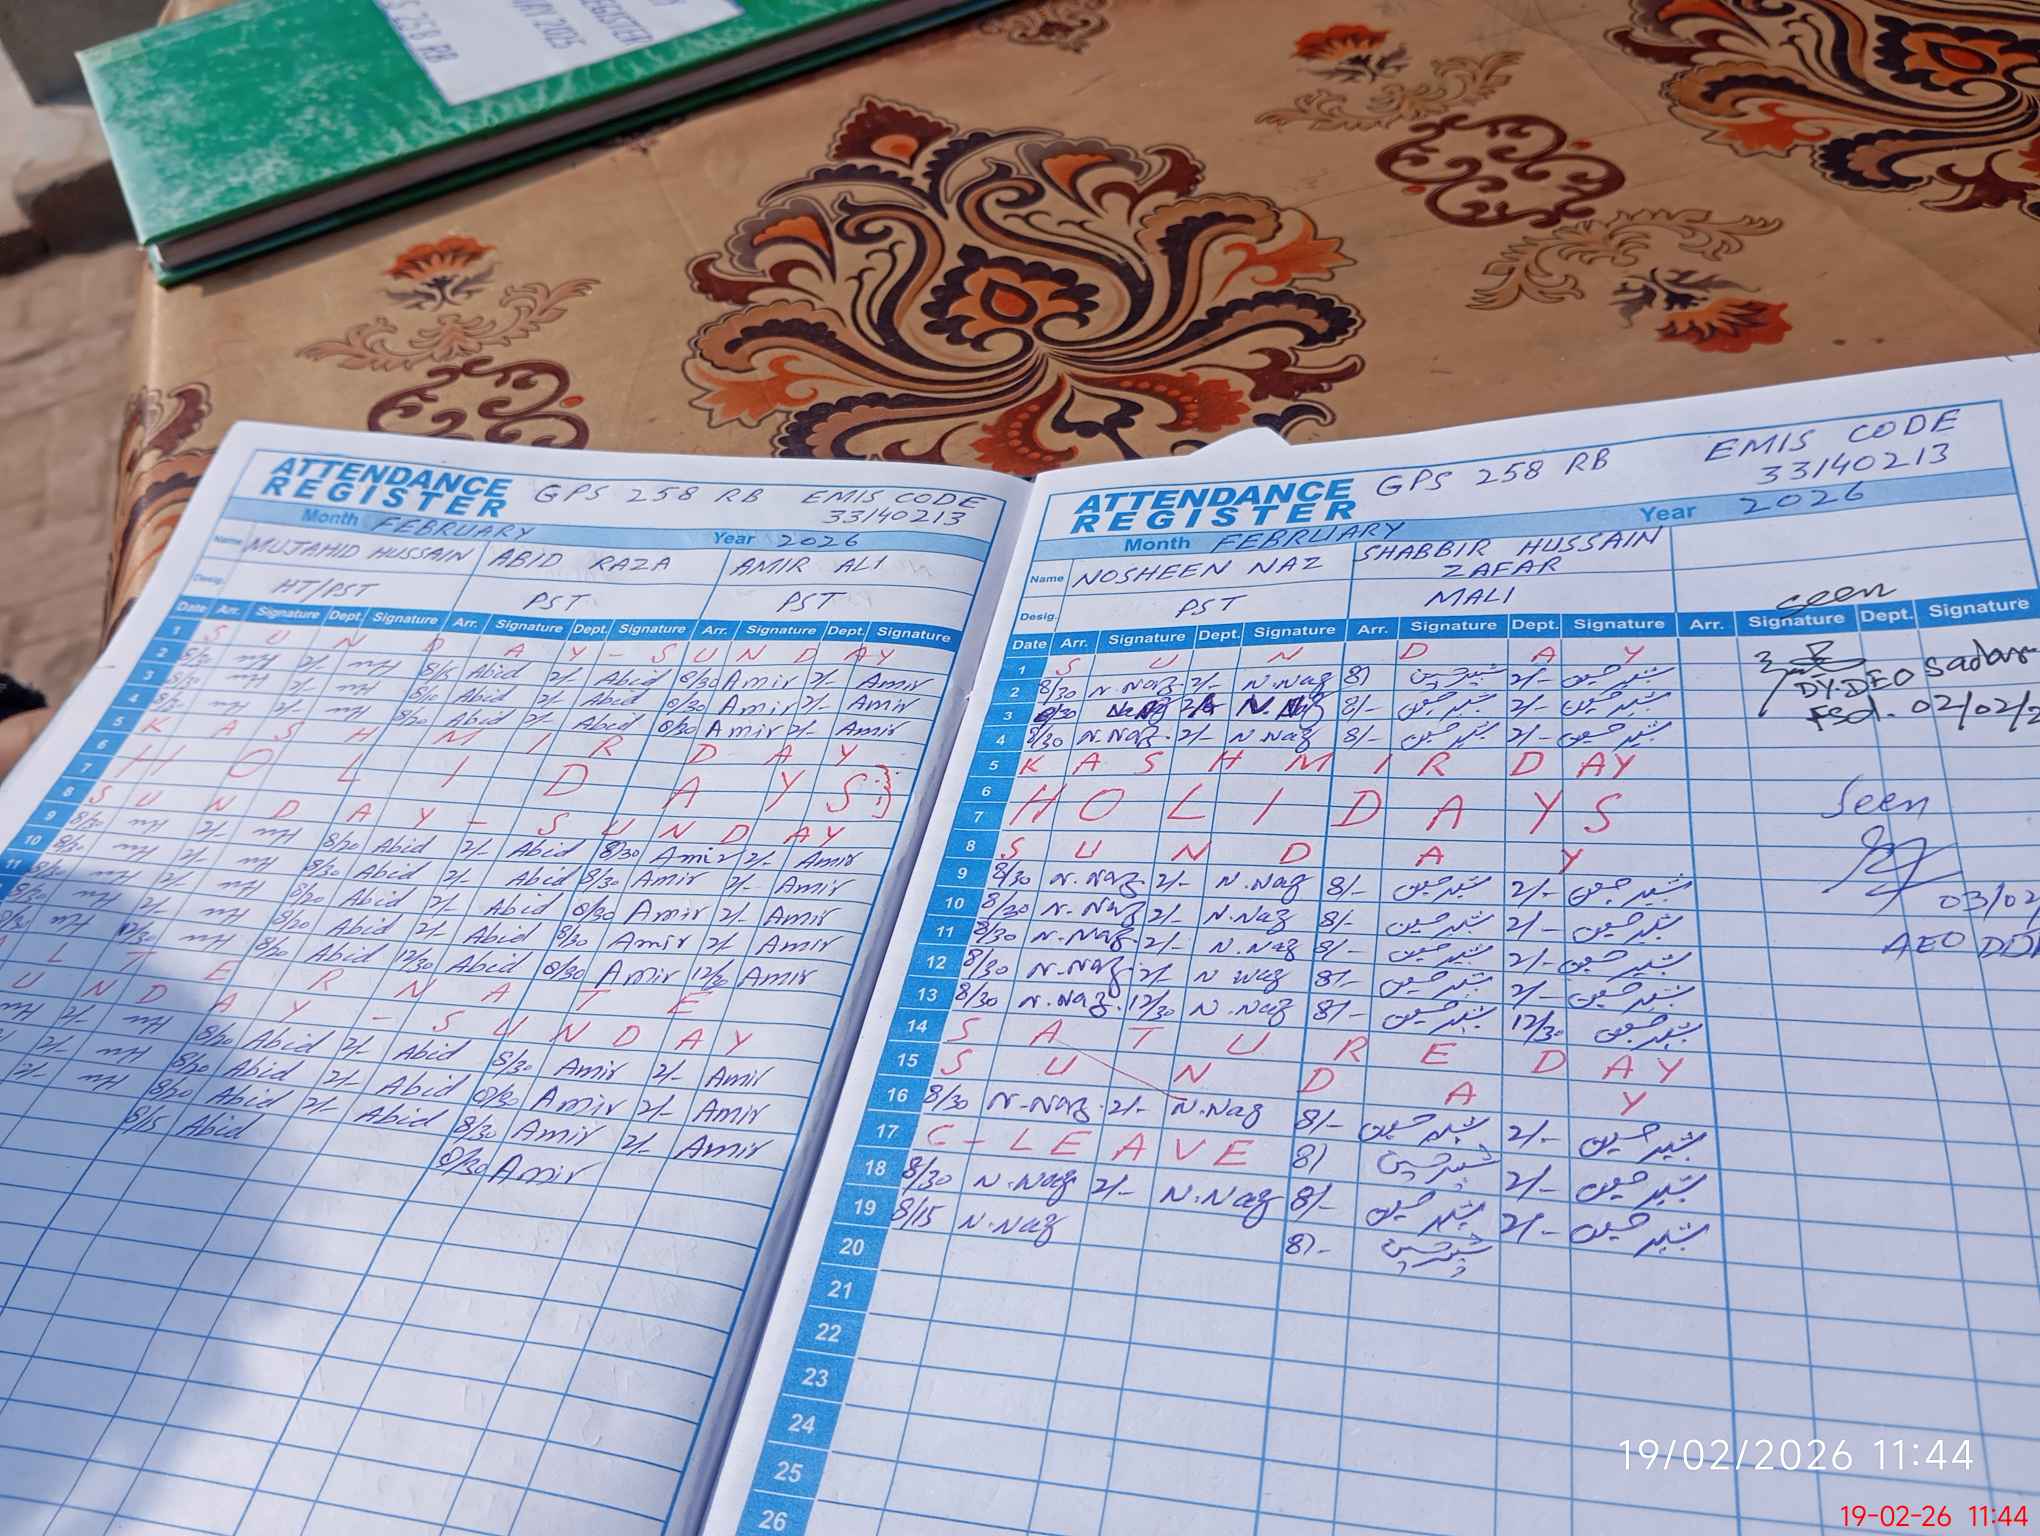 REGISTER
S 258 RB
ATTENDANCE REGISTER GPS 258 RB EMIS CODE
33140213
Month FEBRUARY Year 2026
Name MUJAHID HUSSAIN ABID RAZA AMIR ALI
Desig. HT/PST PST PST
Date Arr. Signature Dept. Signature Arr. Signature Dept. Signature Arr. Signature Dept. Signature
1 S U N D A Y - S U N D A Y
2 8/30 MH 2/- MH 8/15 Abid 2/- Abid 8/30 Amir 2/- Amir
3 8/30 MH 2/- MH 8/10 Abid 2/- Abid 8/30 Amir 2/- Amir
4 8/30 MH 2/- MH 8/20 Abid 2/- Abid 8/30 Amir 2/- Amir
5 K A S H M I R D A Y
6
7 H O L I D A Y S
8 S U N D A Y - S U N D A Y
9 8/30 MH 2/- MH 8/20 Abid 2/- Abid 8/30 Amir 2/- Amir
10 8/30 MH 2/- MH 8/20 Abid 2/- Abid 8/30 Amir 2/- Amir
11 8/30 MH 2/- MH 8/20 Abid 2/- Abid 8/30 Amir 2/- Amir
8/30 MH 2/- MH 8/20 Abid 2/- Abid 8/30 Amir 2/- Amir
8/30 MH 12/30 MH 8/20 Abid 12/30 Abid 8/30 Amir 12/30 Amir
L T E R N A T E
U N D A Y - S U N D A Y
MH 2/- MH 8/20 Abid 2/- Abid 8/30 Amir 2/- Amir
2/- MH 8/20 Abid 2/- Abid 8/30 Amir 2/- Amir
2/- MH 8/20 Abid 2/- Abid 8/30 Amir 2/- Amir
8/15 Abid 8/30 Amir
ATTENDANCE REGISTER GPS 258 RB EMIS CODE
33140213
Month FEBRUARY Year 2026
Name NOSHEEN NAZ SHABBIR HUSSAIN ZAFAR
Desig. PST MALI
seen
Date Arr. Signature Dept. Signature Arr. Signature Dept. Signature Arr. Signature Dept. Signature
1 S U N D A Y
2 8/30 N.Naz 2/- N.Naz 8/ شبیر حسین 2/- شبیر حسین
DY.DEO Sadar
3 8/30 N.Naz 2/- N.Naz 8/- شبیر حسین 2/- شبیر حسین
Fsd. 02/02/2
4 8/30 N.Naz 2/- N.Naz 8/- شبیر حسین 2/- شبیر حسین
5 K A S H M I R D A Y
6
7 H O L I D A Y S
Seen
8 S U N D A Y
9 8/30 N.Naz 2/- N.Naz 8/- شبیر حسین 2/- شبیر حسین
03/02/
10 8/30 N.Naz 2/- N.Naz 8/- شبیر حسین 2/- شبیر حسین
AEO
11 8/30 N.Naz 2/- N.Naz 8/- شبیر حسین 2/- شبیر حسین
12 8/30 N.Naz 2/- N Naz 8/- شبیر حسین 2/- شبیر حسین
13 8/30 N.Naz 12/30 N.Naz 8/- شبیر حسین 12/30 شبیر حسین
14 S A T U R E D A Y
15 S U N D A Y
16 8/30 N.Naz 2/- N.Naz 8/- شبیر حسین 2/- شبیر حسین
17 C - L E A V E 8/ شبیر حسین 2/- شبیر حسین
18 8/30 N.Naz 2/- N.Naz 8/- شبیر حسین 2/- شبیر حسین
19 8/15 N.Naz 8/- شبیر حسین
20
21
22
23
24
25
26
19/02/2026 11:44
19-02-26 11:44